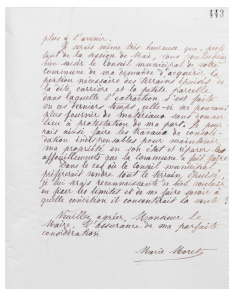 443
plus à l'avenir.
Je serais même très heureuse que, profi-
tant de la session de Mai, vous vouliez
bien saisir le Conseil municipal de votre
commune de ma demande d'acquérir la
portion nécessaire des terrains épuisés de
la dite carrière et la petite parcelle
dans laquelle l'extraction s'est faite
en ces derniers temps, celle-ci ne pouvant
plus fournir de matériaux sans donner
lieu à protestation de ma part. Je pour-
rais ainsi, faire les travaux de consoli-
dation indispensables pour maintenir
ma propriété en son état et réparer les
affouillements que la commune a fait faire.
Dans le cas où le Conseil municipal
préférerait vendre tout le terrain épuisé,
je lui serais reconnaissante de bien vouloir
en fixer les limites et de me faire savoir à
quelle condition il consentirait la vente.
Veuillez agréer, Monsieur le
Maire, l'assurance de ma parfaite
considération
Marie Moret